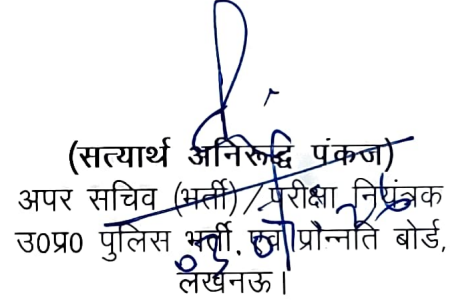 (सत्यार्थ अनिरुद्ध पंकज)
अपर सचिव (भर्ती)/परीक्षा नियंत्रक
उ०प्र० पुलिस भर्ती एवं प्रोन्नति बोर्ड,
लखनऊ।